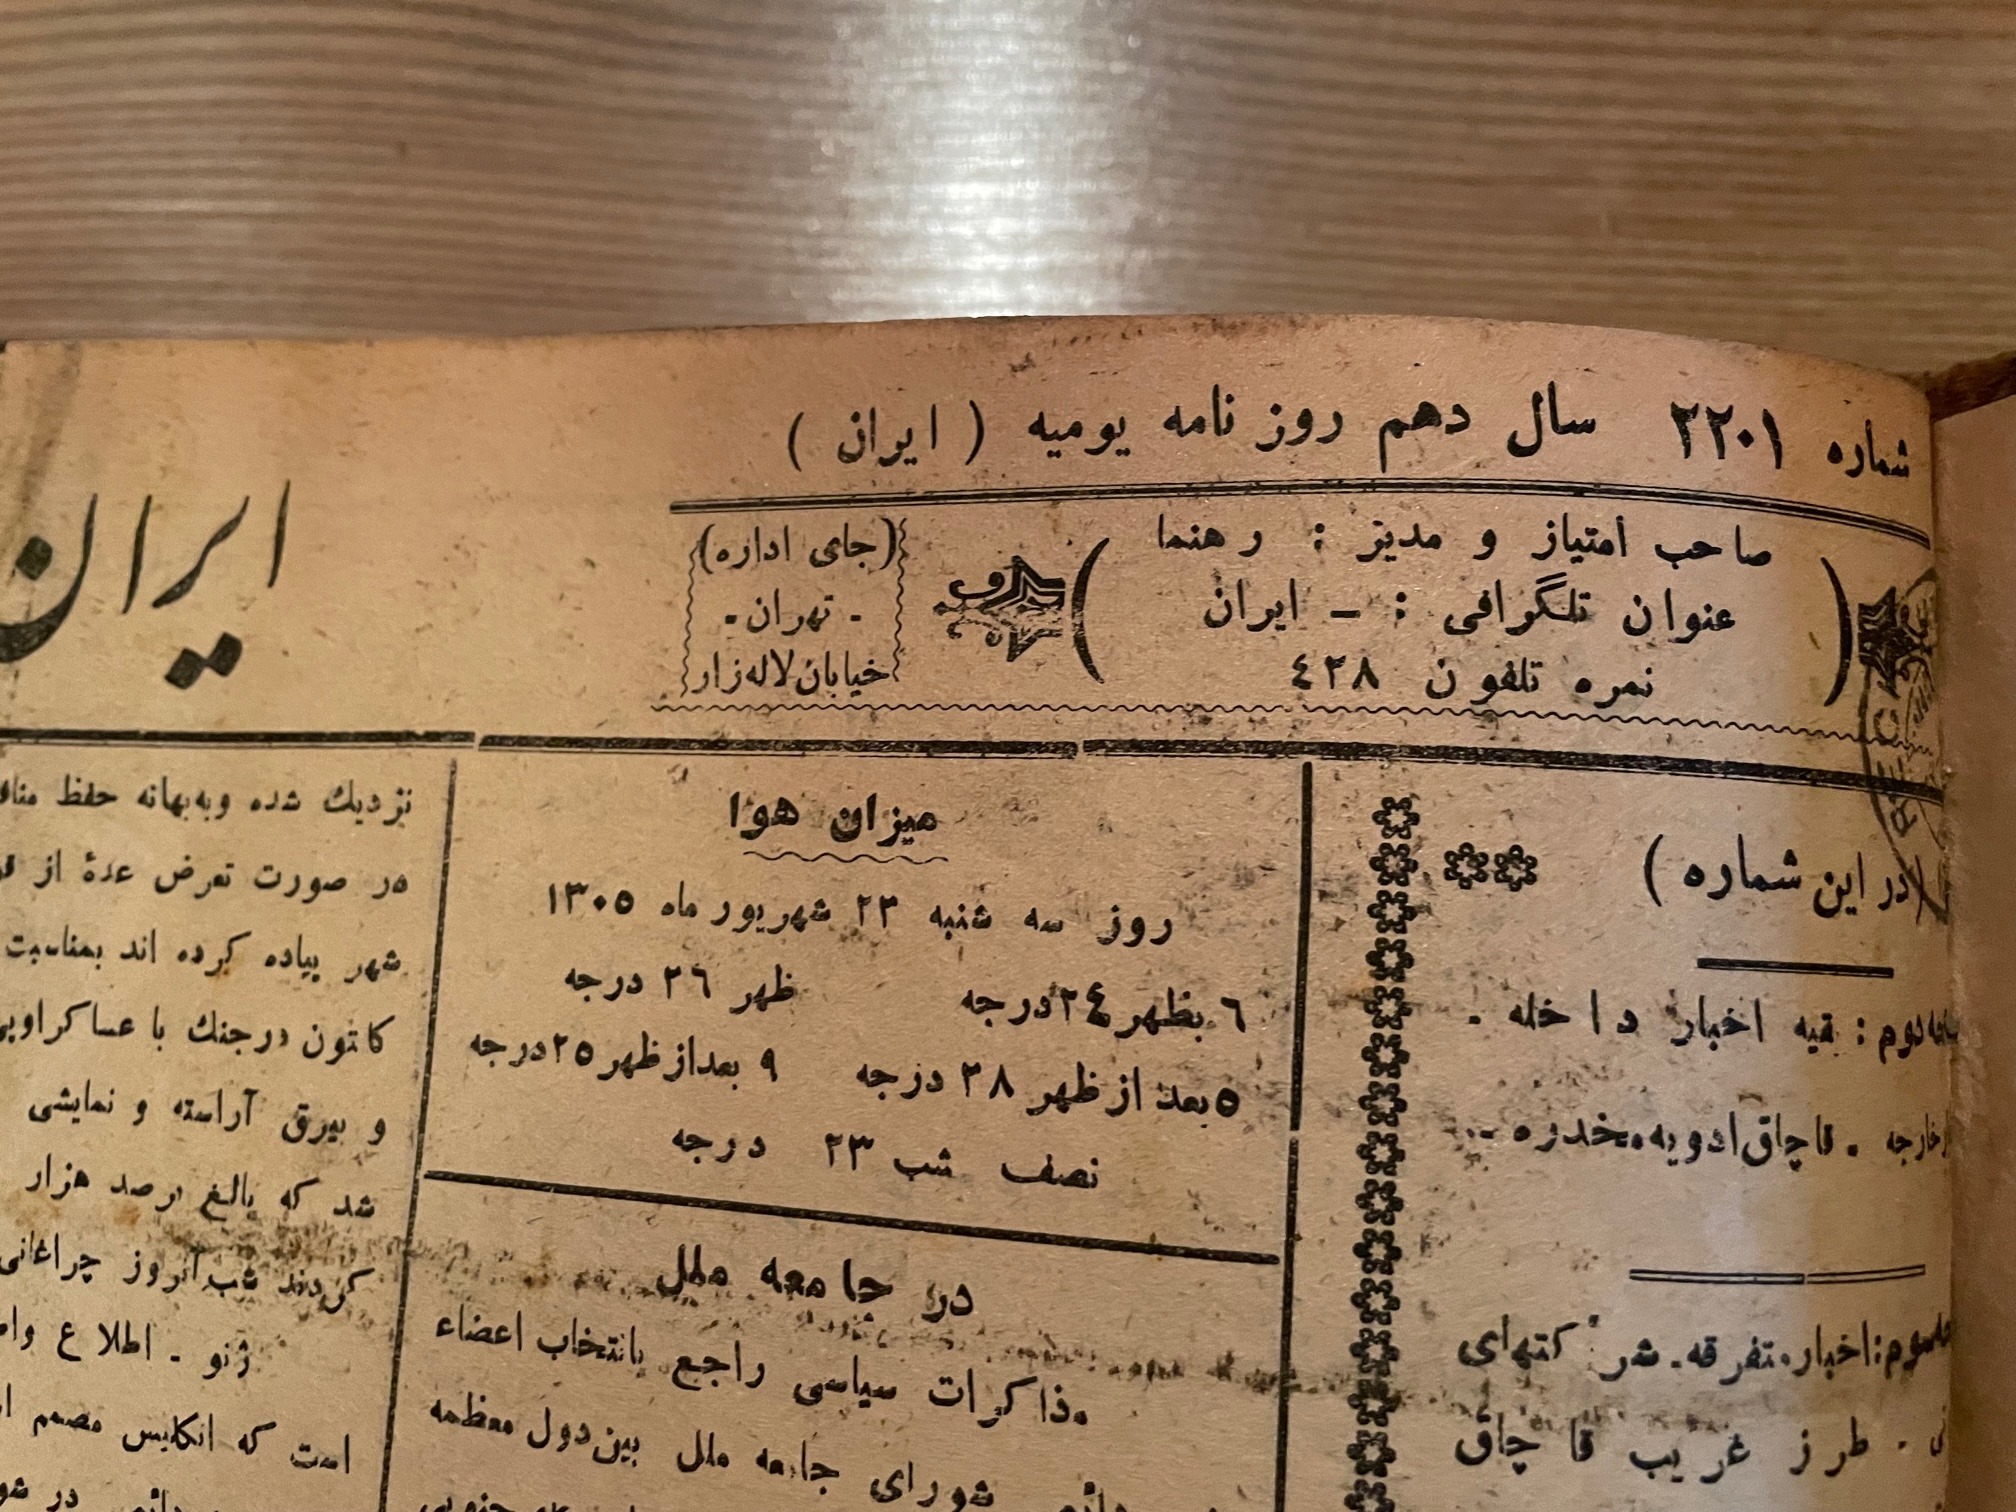 شماره ۲۲۰۱ سال دهم روز نامه یومیه ( ایران )
صاحب امتیاز و مدیر : رهنما
عنوان تلگرافی : ـ ایران
نمره تلفون ٤٣٨
(جای اداره)
- تهران -
خیابان لاله زار
ایران
(در این شماره )
دوم : بقیه اخبار داخله .
خارجه . قاچاق ادویه مخدره -
سوم : اخبار متفرقه . شرکتهای
. طرز غریب قاچاق
میزان هوا
روز سه شنبه ۲۲ شهریور ماه ۱۳۰۵
٦ بظهر ٢٤ درجه ظهر ٢٦ درجه
٥ بعد از ظهر ٢٨ درجه ٩ بعد از ظهر ٢٥ درجه
نصف شب ٢٣ درجه
در جامعه ملل
مذاکرات سیاسی راجع بانتخاب اعضاء
شورای جامعه ملل بین دول معظمه
نزدیك شده و به بهانه حفظ
در صورت تعرض عدۀ از
شهر پیاده کرده اند بمناسبت
کانتون در جنك با عساکر
و بیرق آراسته و نمایشی
شد که بالغ بر صد هزار
کردند شب آنروز چراغانی
ژنو . اطلاع
است که انگلیس مصمم